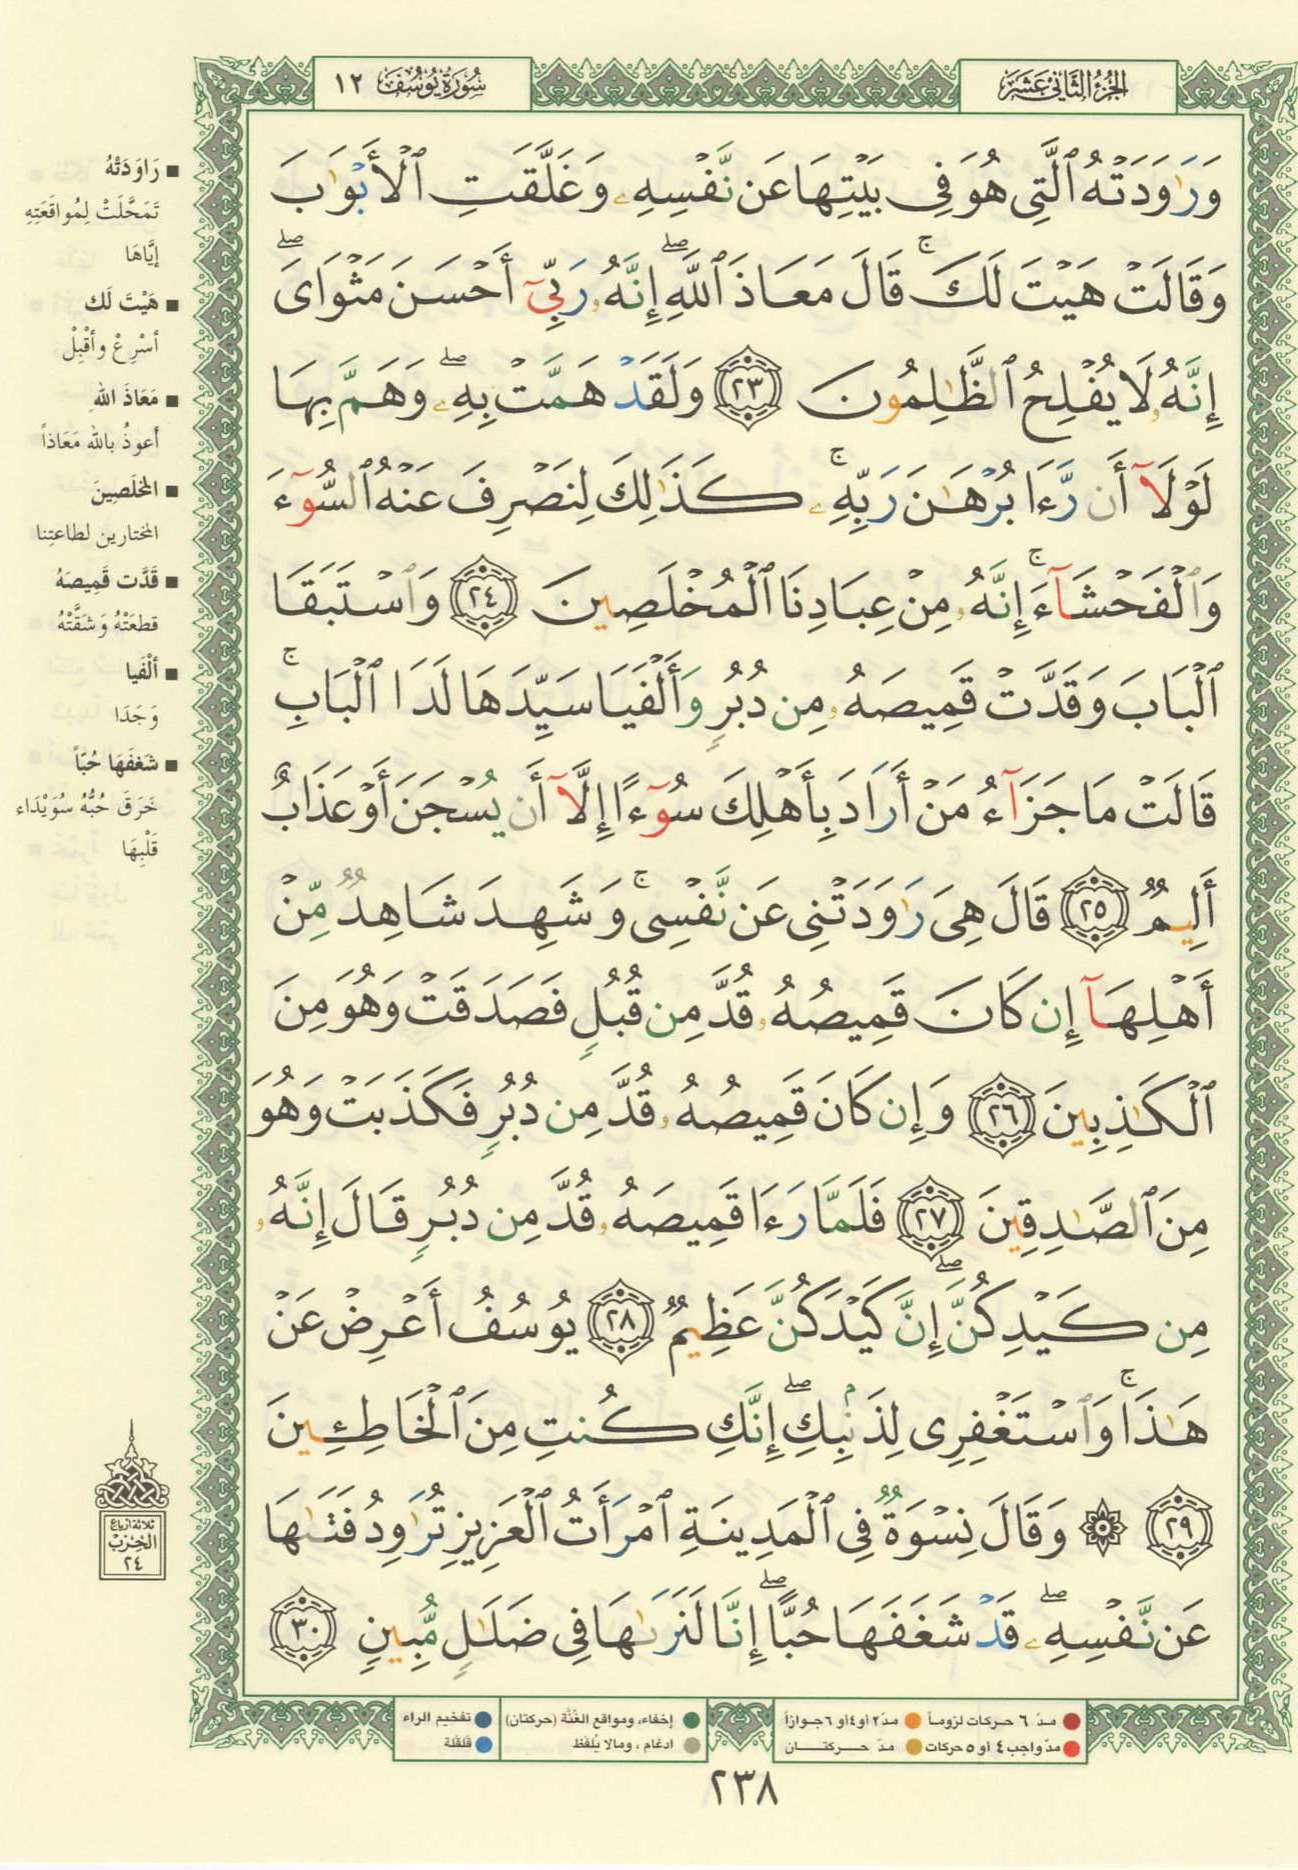 الجزء الثاني عشر
سورة يوسف ١٢
وَرَٰوَدَتْهُ ٱلَّتِى هُوَ فِى بَيْتِهَا عَن نَّفْسِهِۦ وَغَلَّقَتِ ٱلْأَبْوَٰبَ
وَقَالَتْ هَيْتَ لَكَ ۚ قَالَ مَعَاذَ ٱللَّهِ ۖ إِنَّهُۥ رَبِّىٓ أَحْسَنَ مَثْوَاىَ ۖ
إِنَّهُۥ لَا يُفْلِحُ ٱلظَّٰلِمُونَ ٢٣ وَلَقَدْ هَمَّتْ بِهِۦ ۖ وَهَمَّ بِهَا
لَوْلَآ أَن رَّءَا بُرْهَٰنَ رَبِّهِۦ ۚ كَذَٰلِكَ لِنَصْرِفَ عَنْهُ ٱلسُّوٓءَ
وَٱلْفَحْشَآءَ ۚ إِنَّهُۥ مِنْ عِبَادِنَا ٱلْمُخْلَصِينَ ٢٤ وَٱسْتَبَقَا
ٱلْبَابَ وَقَدَّتْ قَمِيصَهُۥ مِن دُبُرٍ وَأَلْفَيَا سَيِّدَهَا لَدَا ٱلْبَابِ ۚ
قَالَتْ مَا جَزَآءُ مَنْ أَرَادَ بِأَهْلِكَ سُوٓءًا إِلَّآ أَن يُسْجَنَ أَوْ عَذَابٌ
أَلِيمٌ ٢٥ قَالَ هِىَ رَٰوَدَتْنِى عَن نَّفْسِى ۚ وَشَهِدَ شَاهِدٌ مِّنْ
أَهْلِهَآ إِن كَانَ قَمِيصُهُۥ قُدَّ مِن قُبُلٍ فَصَدَقَتْ وَهُوَ مِنَ
ٱلْكَٰذِبِينَ ٢٦ وَإِن كَانَ قَمِيصُهُۥ قُدَّ مِن دُبُرٍ فَكَذَبَتْ وَهُوَ
مِنَ ٱلصَّٰدِقِينَ ٢٧ فَلَمَّا رَءَا قَمِيصَهُۥ قُدَّ مِن دُبُرٍ قَالَ إِنَّهُۥ
مِن كَيْدِكُنَّ ۖ إِنَّ كَيْدَكُنَّ عَظِيمٌ ٢٨ يُوسُفُ أَعْرِضْ عَنْ
هَٰذَا ۚ وَٱسْتَغْفِرِى لِذَنۢبِكِ ۖ إِنَّكِ كُنتِ مِنَ ٱلْخَاطِـِٔينَ
٢٩ ۞ وَقَالَ نِسْوَةٌ فِى ٱلْمَدِينَةِ ٱمْرَأَتُ ٱلْعَزِيزِ تُرَٰوِدُ فَتَىٰهَا
عَن نَّفْسِهِۦ ۖ قَدْ شَغَفَهَا حُبًّا ۖ إِنَّا لَنَرَىٰهَا فِى ضَلَٰلٍ مُّبِينٍ ٣٠
■ رَاوَدَتْهُ
تَمَحَّلَتْ لِمُواقَعَتِهِ
إيَّاهَا
■ هَيْتَ لَك
أسْرِعْ وأقْبِلْ
■ مَعَاذَ اللهِ
أعوذُ بالله مَعَاذاً
■ المُخلَصِينَ
المختارين لطاعتِنا
■ قَدَّت قَمِيصَهُ
قطعَتْهُ وَشَقَّتْهُ
■ ألْفَيا
وَجَدَا
■ شَغفَهَا حُبّاً
خَرَقَ حُبُّهُ سُوَيْدَاء
قَلْبِهَا
ثلاثة أرباع
الحزب
٢٤
مدّ ٦ حركات لزوماً
مدّ ٢ أو ٤ أو ٦ جوازاً
مدّ واجب ٤ أو ٥ حركات
مدّ حركتان
إخفاء، ومواقع الغُنَّة (حركتان)
ادغام ، ومالا يُلفظ
تفخيم الراء
قلقلة
٢٣٨